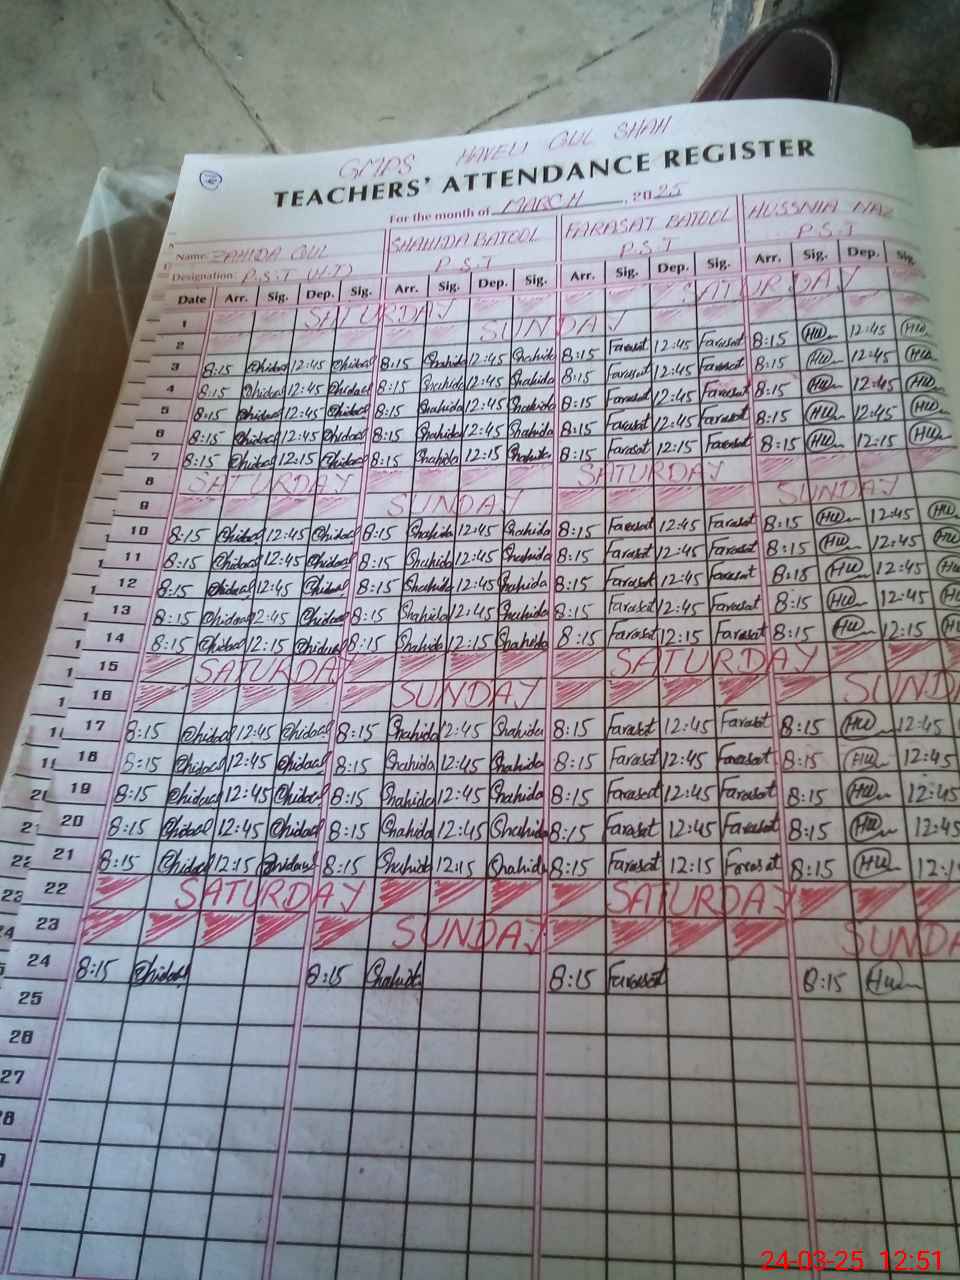 GMPS HAVELI GUL SHAH
TEACHERS' ATTENDANCE REGISTER
For the month of MARCH, 2025
Name: ZAHIDA GUL SHAHIDA BATOOL FARASAT BATOOL HUSSNIA NAZ
Designation: P.S.T P.S.T P.S.T P.S.T
Date Arr. Sig. Dep. Sig. Arr. Sig. Dep. Sig. Arr. Sig. Dep. Sig. Arr. Sig. Dep. Sig.
1 SATURDAY SATURDAY
2 SUNDAY
3 8:15 12:45 8:15 Shahida 12:45 Shahida 8:15 Farasat 12:45 Farasat 8:15 12:45
4 8:15 12:45 8:15 Shahida 12:45 Shahida 8:15 Farasat 12:45 Farasat 8:15 12:45
5 8:15 12:45 8:15 Shahida 12:45 Shahida 8:15 Farasat 12:45 Farasat 8:15 12:45
6 8:15 12:45 8:15 Shahida 12:45 Shahida 8:15 Farasat 12:45 Farasat 8:15 12:45
7 8:15 12:15 8:15 Shahida 12:15 Shahida 8:15 Farasat 12:15 Farasat 8:15 12:15
8 SATURDAY SATURDAY
9 SUNDAY SUNDAY
10 8:15 12:45 8:15 Shahida 12:45 Shahida 8:15 Farasat 12:45 Farasat 8:15 12:45
11 8:15 12:45 8:15 Shahida 12:45 Shahida 8:15 Farasat 12:45 Farasat 8:15 12:45
12 8:15 12:45 8:15 Shahida 12:45 Shahida 8:15 Farasat 12:45 Farasat 8:15 12:45
13 8:15 12:45 8:15 Shahida 12:45 Shahida 8:15 Farasat 12:45 Farasat 8:15 12:45
14 8:15 12:15 8:15 Shahida 12:15 Shahida 8:15 Farasat 12:15 Farasat 8:15 12:15
15 SATURDAY SATURDAY
16 SUNDAY SUND
17 8:15 12:45 8:15 Shahida 12:45 Shahida 8:15 Farasat 12:45 Farasat 8:15 12:45
18 8:15 12:45 8:15 Shahida 12:45 Shahida 8:15 Farasat 12:45 Farasat 8:15 12:45
19 8:15 12:45 8:15 Shahida 12:45 Shahida 8:15 Farasat 12:45 Farasat 8:15 12:45
20 8:15 12:45 8:15 Shahida 12:45 Shahida 8:15 Farasat 12:45 Farasat 8:15 12:45
21 8:15 12:15 8:15 Shahida 12:15 Shahida 8:15 Farasat 12:15 Farasat 8:15 12:1
22 SATURDAY SATURDAY
23 SUNDAY SUNDA
24 8:15 8:15 Shahida 8:15 Farasat 8:15
25
26
27
24-03-25 12:51